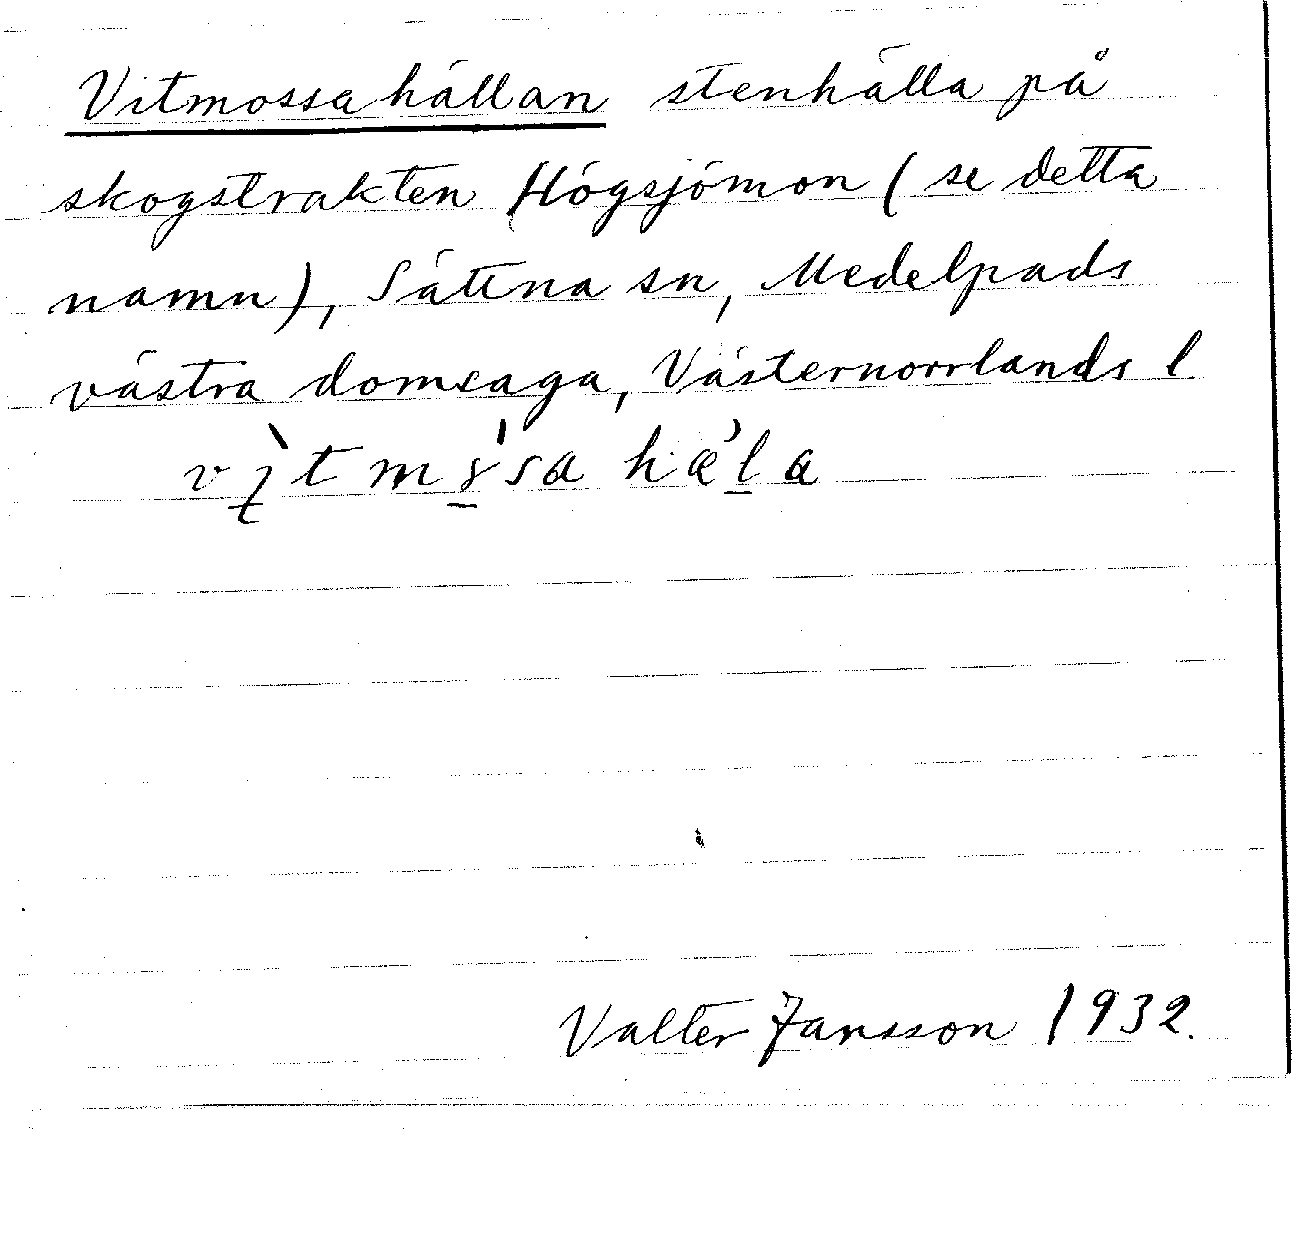 Vitmossahällan stenhälla på
skogstrakten Högsjömon (se detta
namn), Sättna sn, Medelpads
västra domsaga, Västernorrlands l
Valter Jansson 1932.